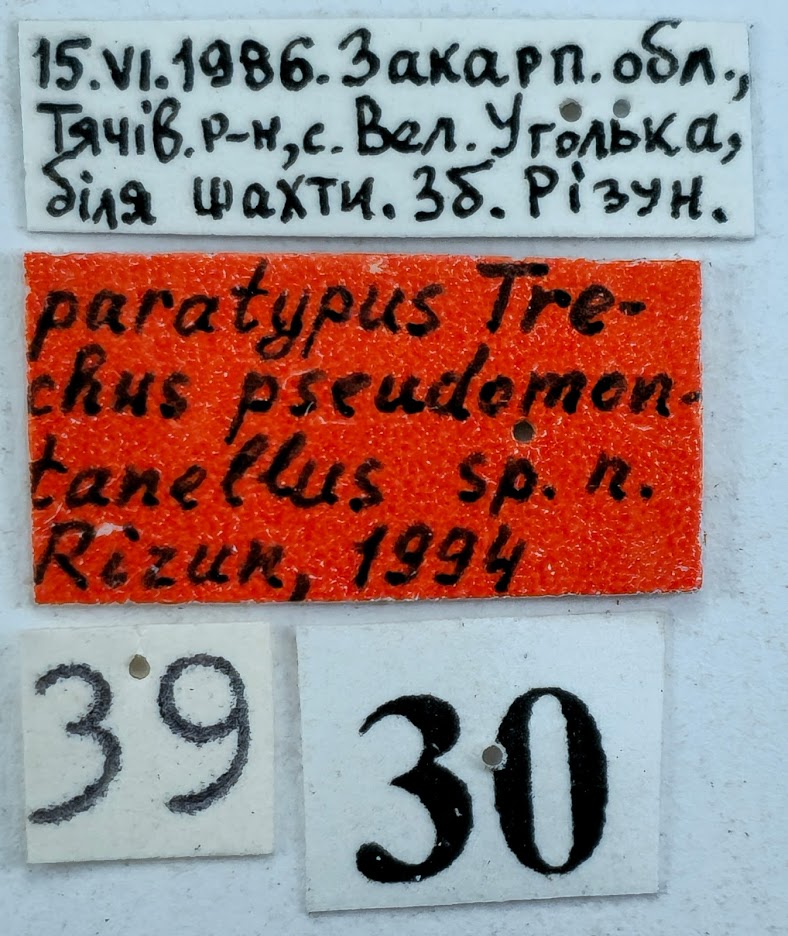 15.VI.1986. Закарп. обл.,
Тячів. р-н, с. Вел. Уголька,
біля шахти. Зб. Різун.
paratypus Tre-
chus pseudomon-
tanellus sp. n.
Rizun, 1994
39
30